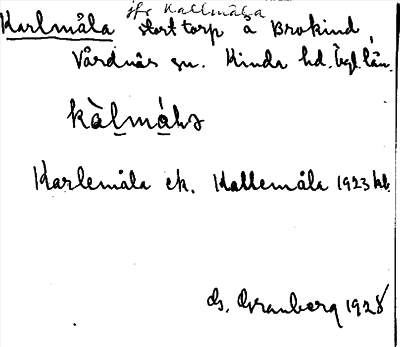 jfr Kallmåla
Karlmåla stort torp å Brokind,
Vårdnäs sn. Kinda hd. Ögl. län.
kàlmåla
Karlemåla ek. Kallemåla 1923 kb.
G. Granberg 1928